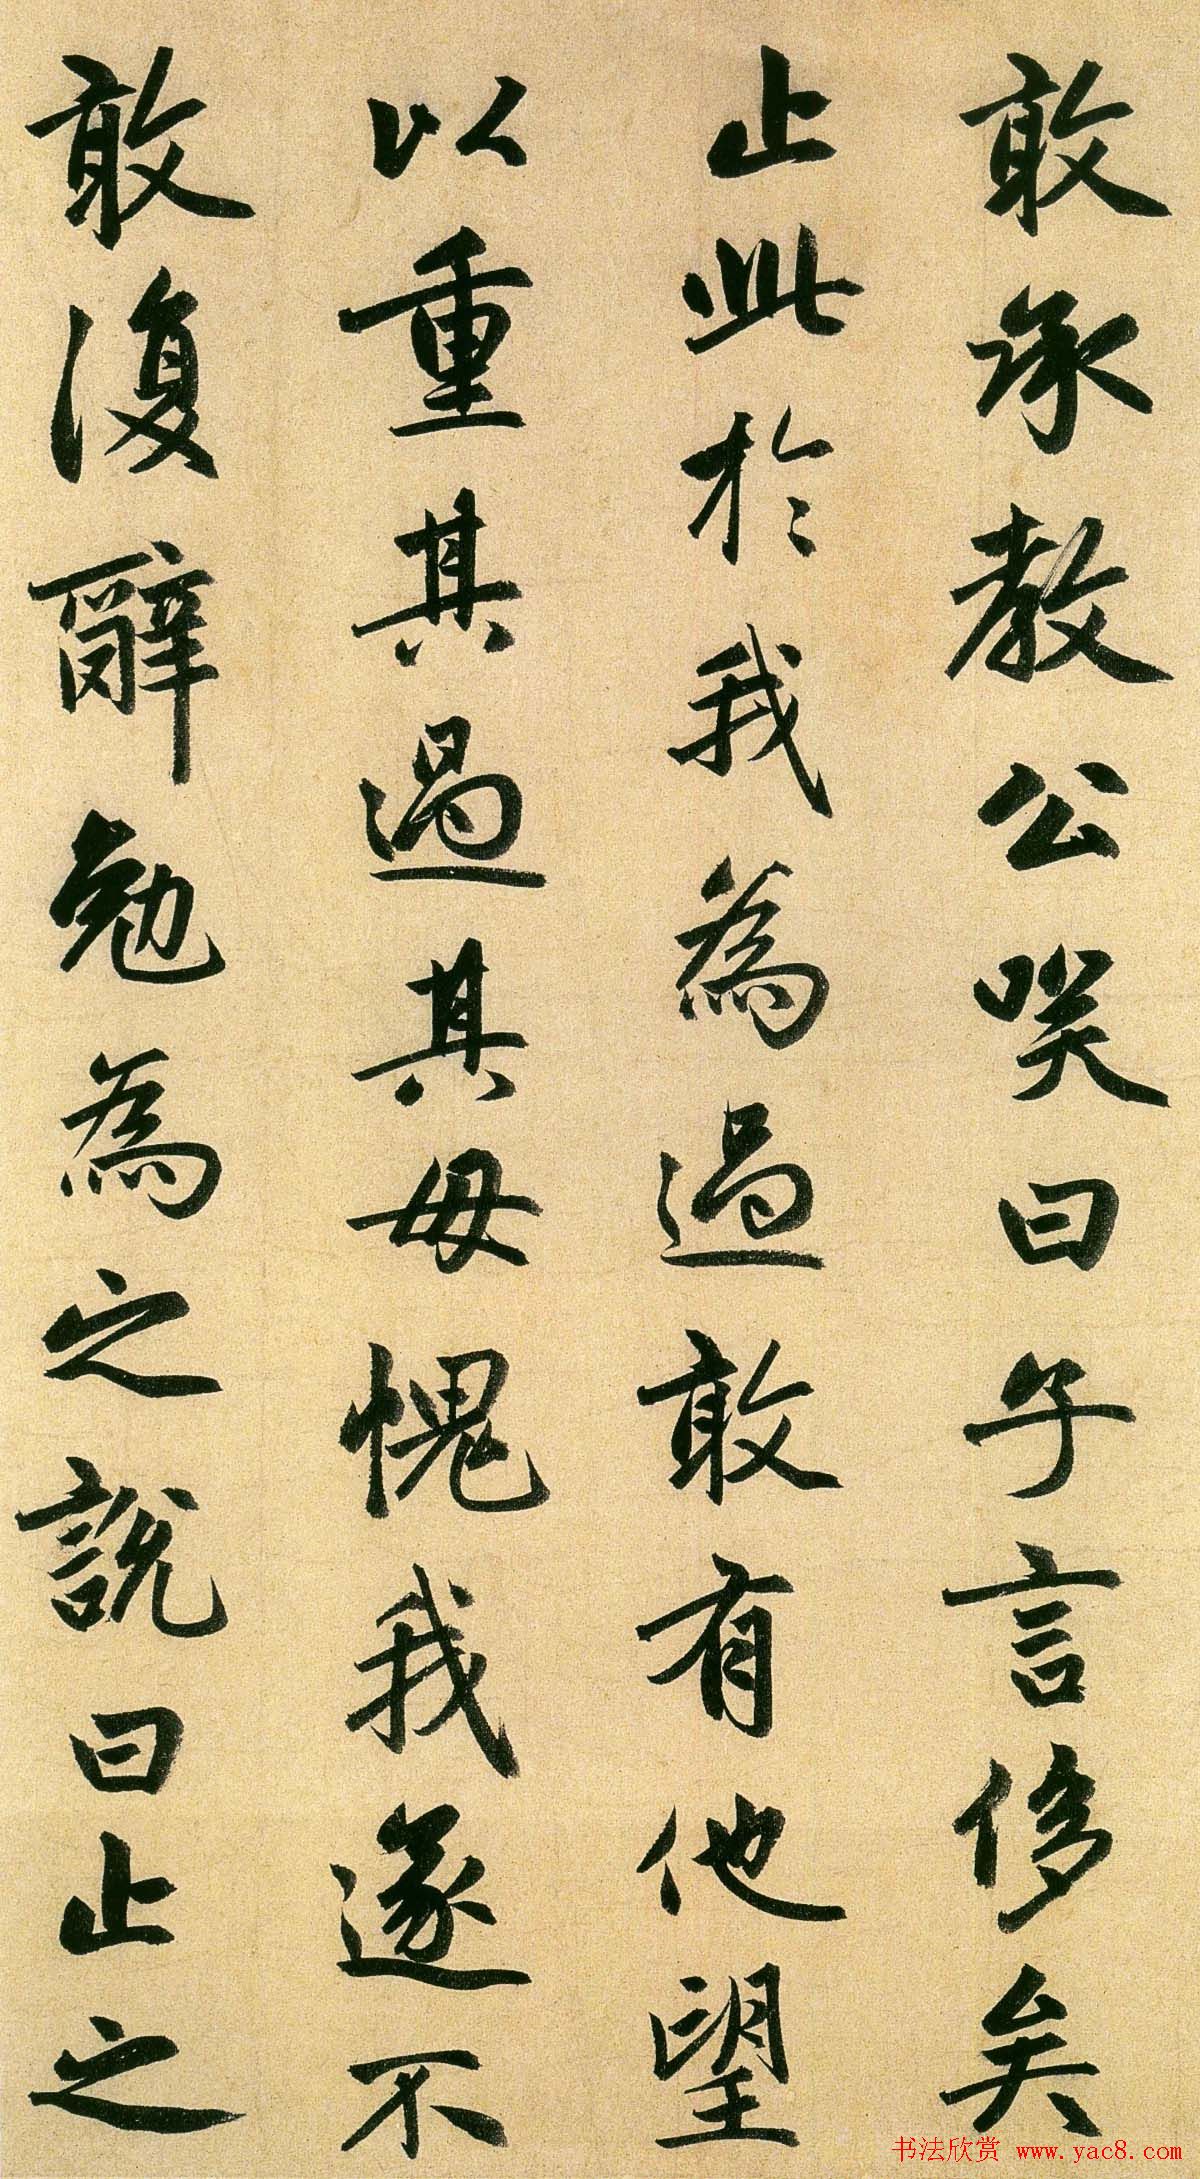 敢承教公笑曰子言侈矣
止此於我為過敢有他望
以重其過其毋愧我遂不
敢復辭勉為之說曰止之
书法欣赏 www.yac8.com